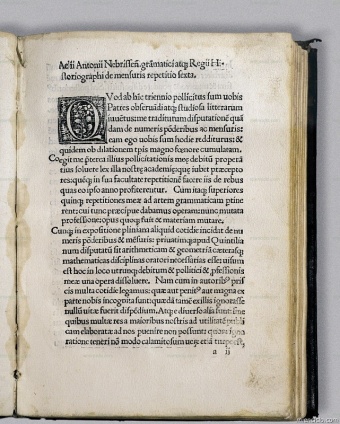 Aelii Antonii Nebrissen̄. grāmatici atq; Regii Hi-
storiographi de mensuris repetitio sexta.
QVod ab hīc triennio pollicitus sum uobis
Patres obseruādi atq; studiosa litterarum
iuuētus: me traditurum disputationē quā
dam de numeris pōderibus ac mensuris:
eam ego uobis sum hodie redditurus: &
quidem ob dilationem tp̄is magno fœnore cumulatam.
Coegit me p̄terea illius pollicitationis meę debitū properā
tius soluere lex illa nostrę academię: quę iubet pręcepto
res: quęq; in sua facultate repetitionē facere iis de rebus
quas eo ipso anno profiterentur. Cum itaq; superiores
quinq; repetitiones meæ ad artem grammaticam ptine
rent: cui tunc pręcipue dabamus operam: nunc mutata
professione: opus quoq; fuit & materiam mutare.
Cunq; in expositione pliniana aliquid cotidie incidat de nu
meris pōderibus & mēsuris: priuatimq; apud Quintilia
num disputatū sit arithmeticam & geometriā cæterasq;
mathematicas disciplinas oratori necessarias esse: uisum
est hoc in loco utrunq; debitum & polliciti & pfessionis
meæ una opera dissoluere. Nam cum in autorib⁹ pris
cis multa cotidie legamus: quæ aut penit⁹ aut magna ex
parte nobis incognita sunt: quæ dā tamē exillis ignorasse
nullū uitæ fuerit dispēdium. Atq; e diuerso alia sunt
quibus multæ res a maioribus nostris ad utilitatē publi
cam elaboratæ ad nos puenire non possunt: quorū igno
ratione teneri nō modo calamitosum uerū et turpe est
a ii